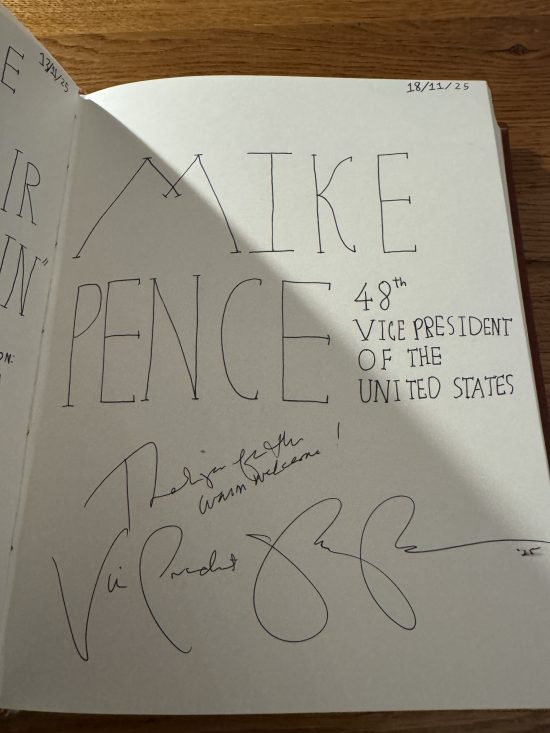 E
13/11/25
IR
IN"
ON:
18/11/25
MIKE
PENCE
48th
VICE PRESIDENT
OF THE
UNITED STATES
Thank you for the
warm welcome!
Vice President
'25